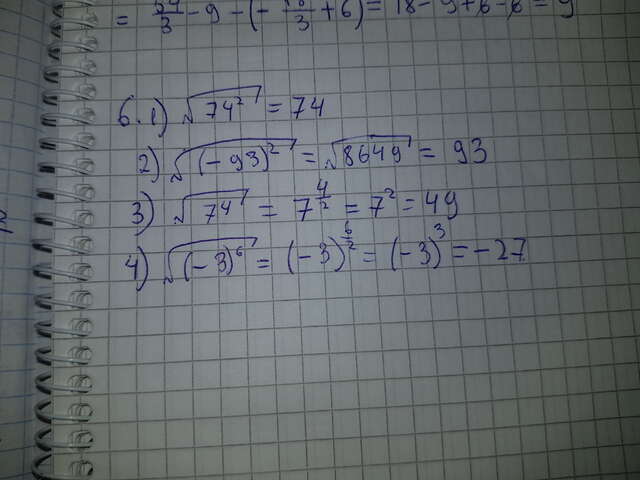 = 54/3 - 9 - (- 18/3 + 6) = 18 - 9 + 6 - 6 = 9
6. 1) √74² = 74
2) √(-93)² = √8649 = 93
3) √7⁴ = 7^(4/2) = 7² = 49
4) √(-3)⁶ = (-3)^(6/2) = (-3)³ = -27